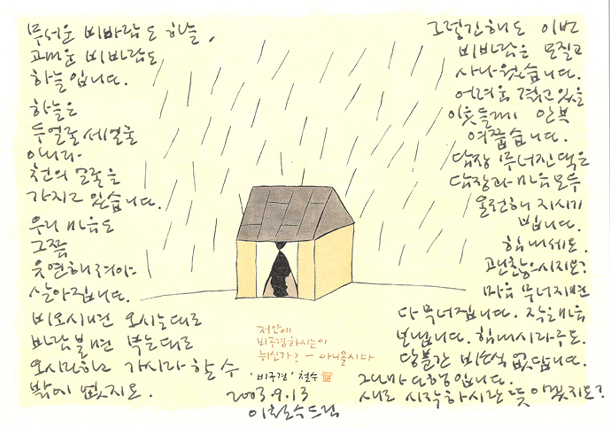 무서운 비바람도 하늘,
고마운 비바람도
하늘입니다.
하늘은
두얼굴 세얼굴
아니라
천의 얼굴을
가지고 있습니다.
우리 마음도
그쯤
유연해 져야
살아집니다.
비오시면 오시는대로
바람불면 부는대로
오시라하고 가시라 할 수
밖에 없지요.
그렇긴해도 이번
비바람은 모질고
사나웠습니다.
어려움 겪고있을
이웃들께 안부
여쭙습니다.
담장 무너진댁은
담장과 마음 모두
온전해 지시기
빕니다.
힘내세요.
괜찮으시지요?
마음 무너지면
다 무너집니다. 작은마음
보냅니다. 힘내시라구요.
당분간 비소식 없답니다.
그나마 다행입니다.
새로 시작하시란 뜻 아니겠지요?
저안에
비구경하시는이
뉘신가? – 아니올시다
'비구경' 철수
2003.9.13
이철수드림